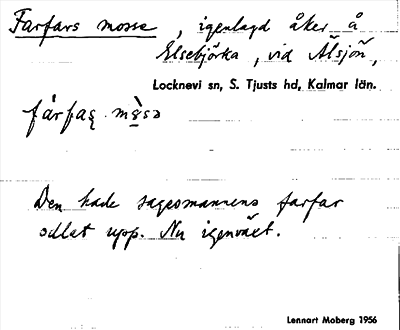 Farfars mosse, igenlagd åker å
Elsebjörka, vid Älsjön,
Locknevi sn, S. Tjusts hd, Kalmar län.
fárfaꞩ mòsə
Den hade sagesmannens farfar
odlat upp. Nu igenväxt.
Lennart Moberg 1956